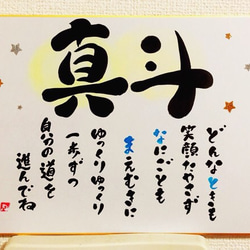 真斗
どんなときも
笑顔たやさず
なにごとも
まえむきに
ゆっくりゆっくり
一歩ずつ
自分の道を
進んでね